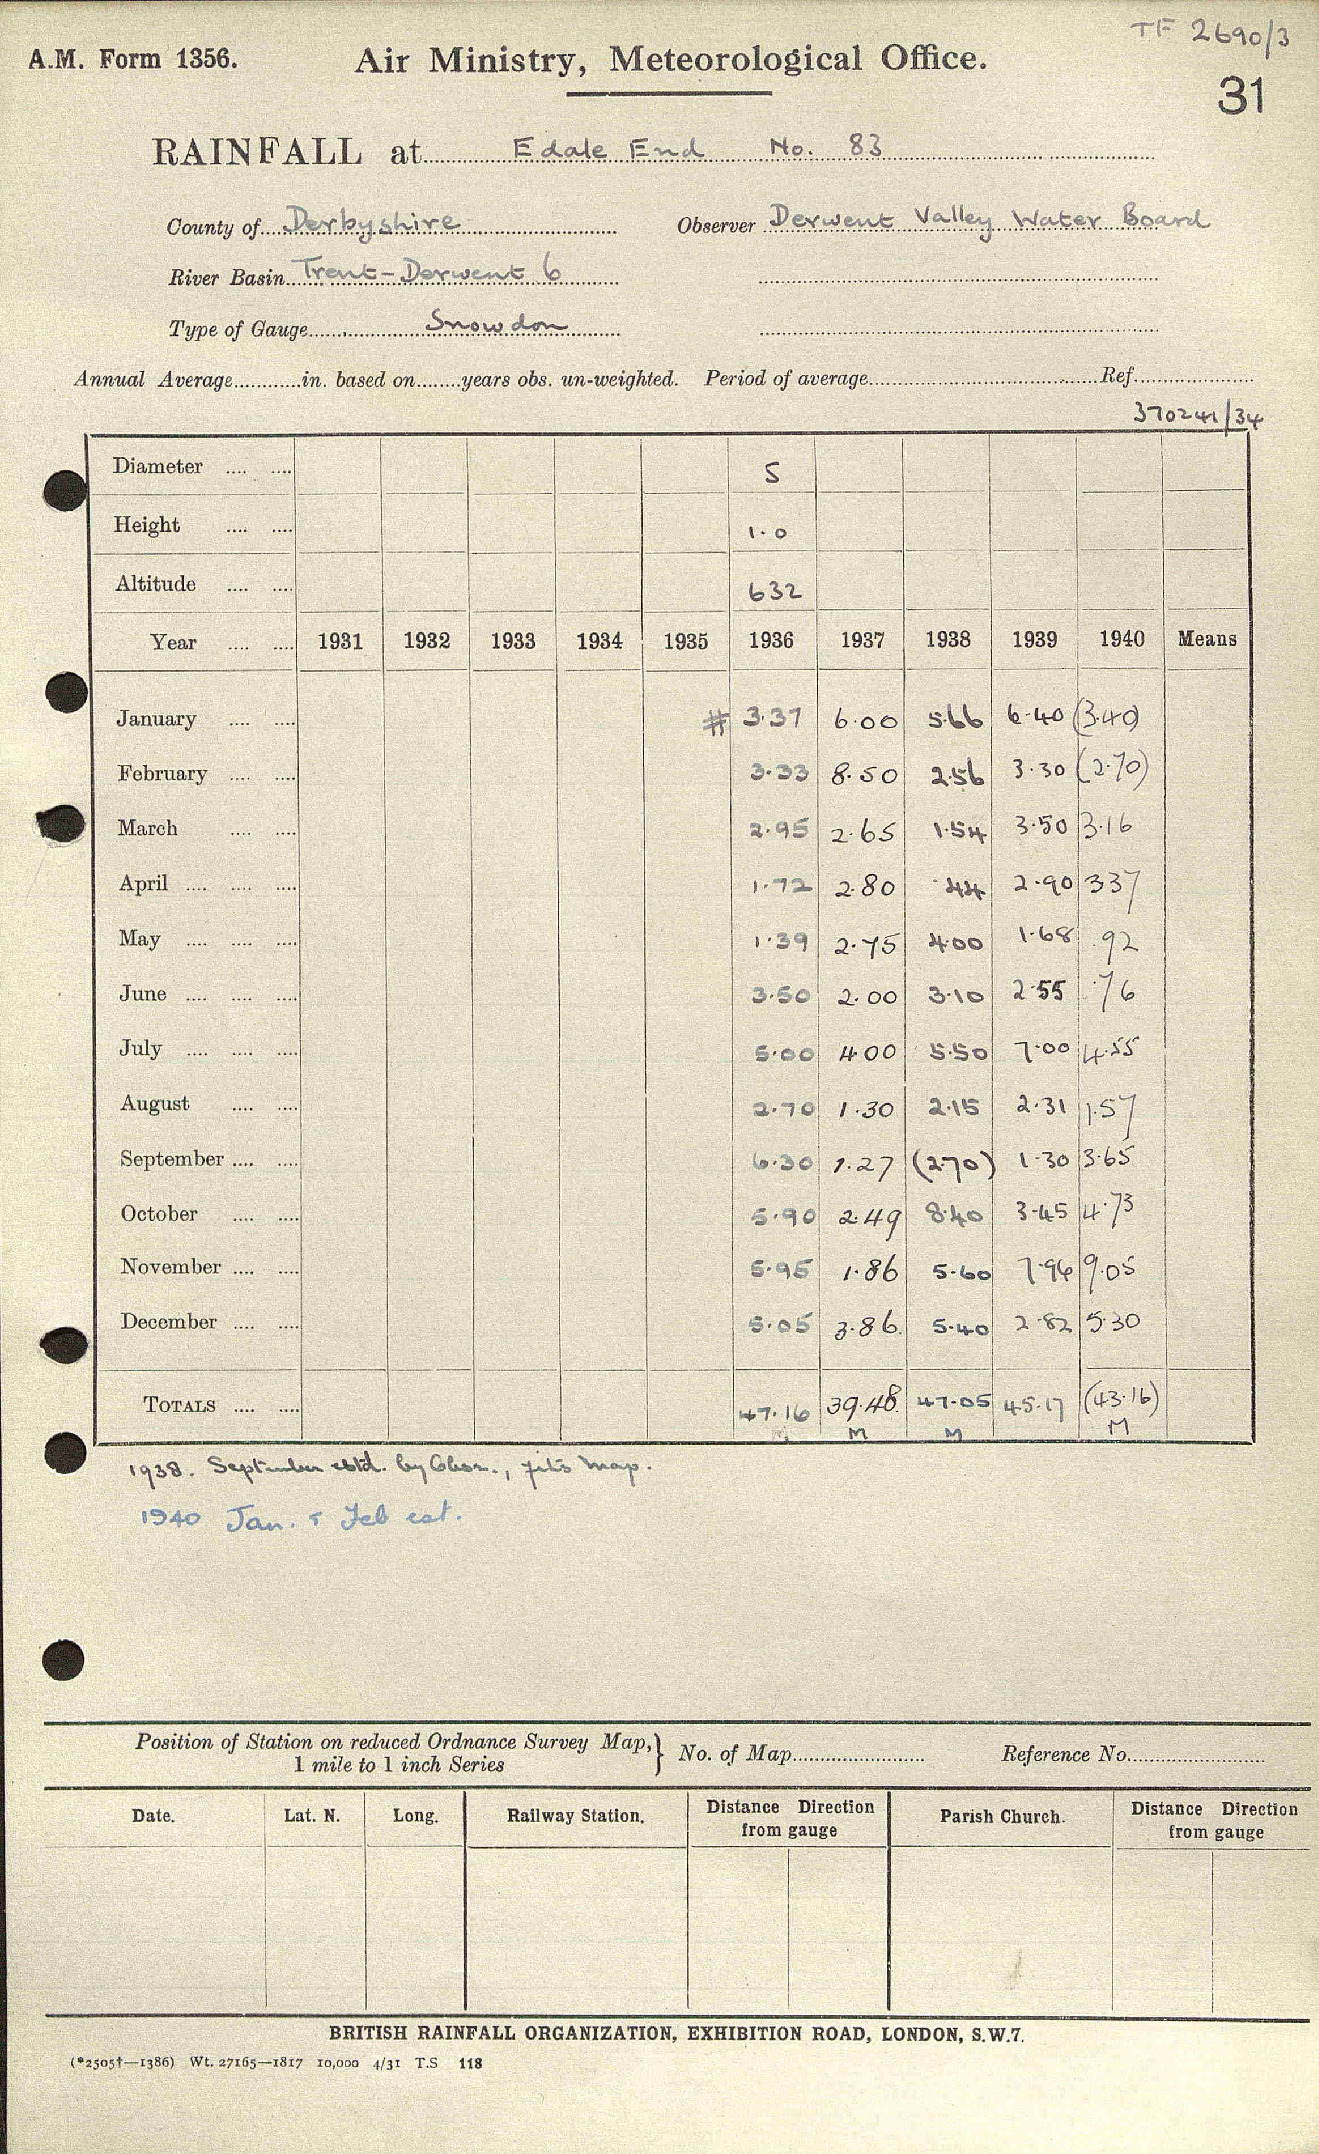 TF 2690/3
A.M. Form 1356. Air Ministry, Meteorological Office.
31
RAINFALL at Edale End No. 83
County of Derbyshire Observer Derwent Valley Water Board
River Basin Trent-Derwent 6
Type of Gauge Snowdon
Annual Average............in. based on........years obs. un-weighted. Period of average............ Ref............
370241/34
Diameter .... .... 5
Height .... .... 1.0
Altitude .... .... 632
Year .... .... 1931 1932 1933 1934 1935 1936 1937 1938 1939 1940 Means
January .... .... # 3.37 6.00 5.66 6.40 (3.40)
February .... .... 3.33 8.50 2.56 3.30 (2.70)
March .... .... 2.95 2.65 1.54 3.50 3.16
April .... .... .... 1.72 2.80 .44 2.90 3.37
May .... .... .... 1.39 2.75 4.00 1.68 .92
June .... .... .... 3.50 2.00 3.10 2.55 .76
July .... .... .... 5.00 4.00 5.50 7.00 4.55
August .... .... 2.70 1.30 2.15 2.31 1.57
September .... .... 6.30 1.27 (2.70) 1.30 3.65
October .... .... 5.90 2.49 8.40 3.45 4.73
November .... .... 5.95 1.86 5.60 7.96 9.05
December .... .... 5.05 3.86 5.40 2.82 5.30
TOTALS .... .... 47.16 39.48 47.05 45.17 (43.16)
M M M
1938. September estd. by Obsr., fits map.
1940 Jan. & Feb est.
Position of Station on reduced Ordnance Survey Map,} No. of Map............ Reference No............
1 mile to 1 inch Series
Date. Lat. N. Long. Railway Station. Distance Direction from gauge Parish Church. Distance Direction from gauge
BRITISH RAINFALL ORGANIZATION, EXHIBITION ROAD, LONDON, S.W.7.
(*2505†—1386) Wt. 27165—1817 10,000 4/31 T.S 118